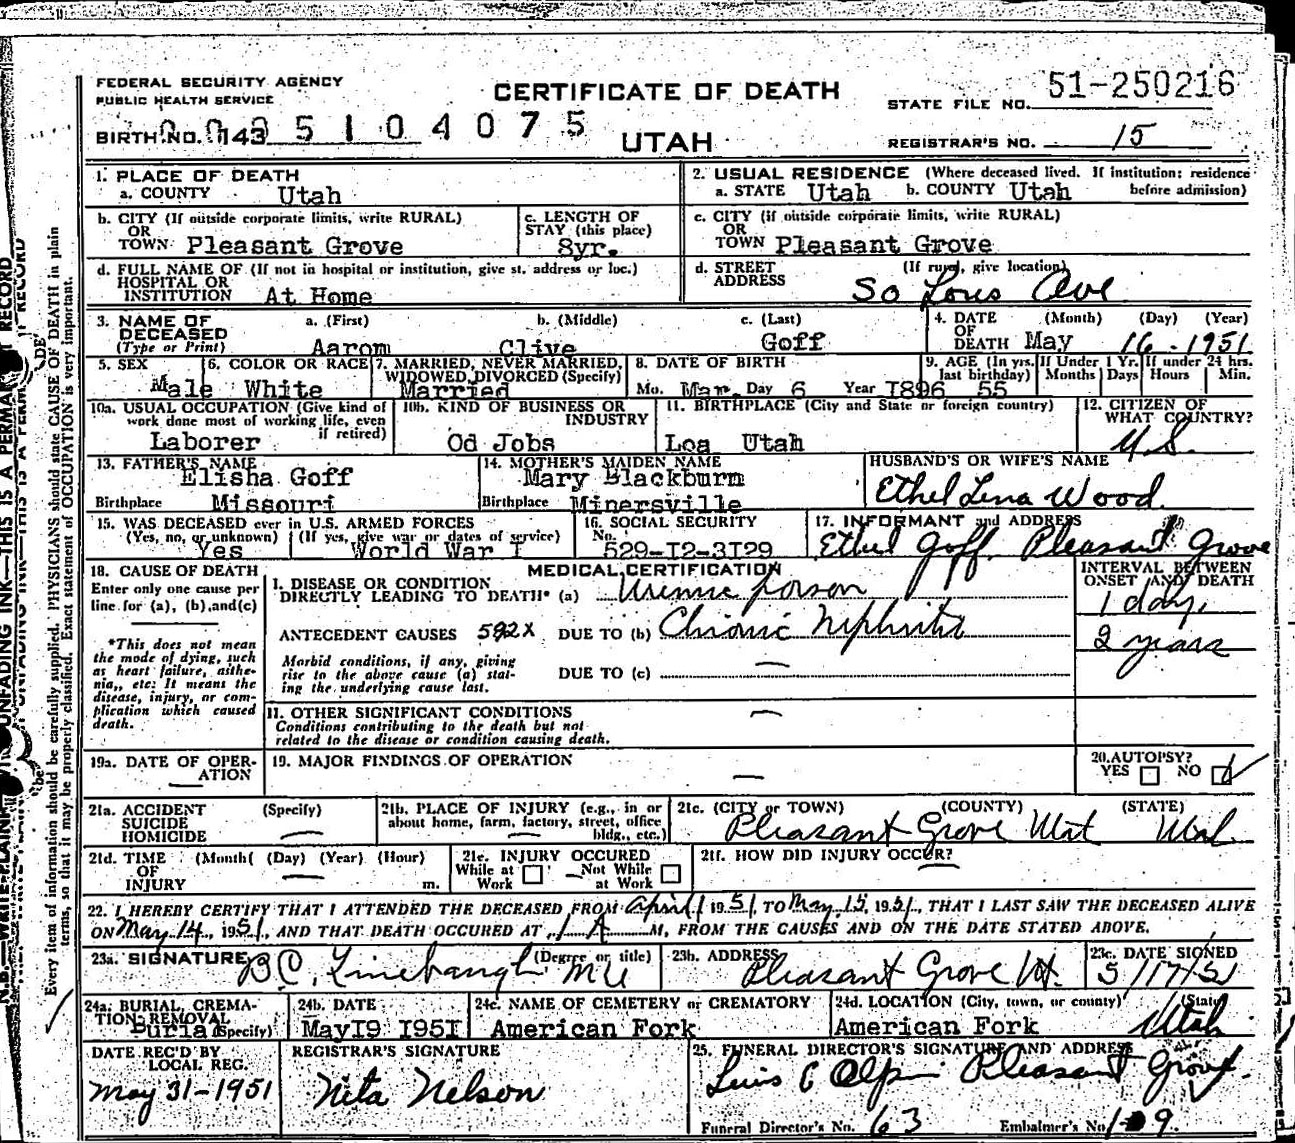 FEDERAL SECURITY AGENCY
PUBLIC HEALTH SERVICE
CERTIFICATE OF DEATH
STATE FILE NO. 51-250216
BIRTH NO. 143 5 1 0 4 0 7 5
UTAH
REGISTRAR'S NO. 15
1. PLACE OF DEATH
a. COUNTY Utah
2. USUAL RESIDENCE (Where deceased lived. If institution: residence before admission)
a. STATE Utah b. COUNTY Utah
b. CITY (If outside corporate limits, write RURAL)
OR
TOWN Pleasant Grove
c. LENGTH OF
STAY (this place)
8yr.
c. CITY (if outside corporate limits, write RURAL)
OR
TOWN Pleasant Grove
d. FULL NAME OF (If not in hospital or institution, give st. address or loc.)
HOSPITAL OR
INSTITUTION At Home
d. STREET (If rural, give location)
ADDRESS So Lous Ave
3. NAME OF DECEASED
(Type or Print)
a. (First) b. (Middle) c. (Last)
Aarom Clive Goff
4. DATE OF DEATH (Month) (Day) (Year)
May 16 - 1951
5. SEX
Male
6. COLOR OR RACE
White
7. MARRIED, NEVER MARRIED,
WIDOWED, DIVORCED (Specify)
Married
8. DATE OF BIRTH
Mo. Mar. Day 6 Year I896
9. AGE (In yrs. last birthday)
55
If Under 1 Yr.
Months Days
If under 24 hrs.
Hours Min.
10a. USUAL OCCUPATION (Give kind of
work done most of working life, even
if retired)
Laborer
10b. KIND OF BUSINESS OR
INDUSTRY
Od Jobs
11. BIRTHPLACE (City and State or foreign country)
Loa Utah
12. CITIZEN OF
WHAT COUNTRY?
U.S.
13. FATHER'S NAME
Elisha Goff
Birthplace Missouri
14. MOTHER'S MAIDEN NAME
Mary Blackburm
Birthplace Minersville
HUSBAND'S OR WIFE'S NAME
Ethel Lena Wood
15. WAS DECEASED ever in U.S. ARMED FORCES
(Yes, no, or unknown) (If yes, give war or dates of service)
Yes World War I
16. SOCIAL SECURITY
No.
529-I2-3I29
17. INFORMANT and ADDRESS
Ethel Goff Pleasant Grove
18. CAUSE OF DEATH
Enter only one cause per
line for (a), (b), and (c)
*This does not mean
the mode of dying, such
as heart failure, asthe-
nia,, etc: It means the
disease, injury, or com-
plication which caused
death.
MEDICAL CERTIFICATION
INTERVAL BETWEEN
ONSET AND DEATH
I. DISEASE OR CONDITION
DIRECTLY LEADING TO DEATH* (a) Uremic poison
1 day,
ANTECEDENT CAUSES 592X DUE TO (b) Chronic Nephritis
2 years
Morbid conditions, if any, giving
rise to the above cause (a) stat-
ing the underlying cause last.
DUE TO (c) —
11. OTHER SIGNIFICANT CONDITIONS —
Conditions contributing to the death but not
related to the disease or condition causing death.
19a. DATE OF OPER-
ATION
—
19. MAJOR FINDINGS OF OPERATION
—
20. AUTOPSY?
YES NO
21a. ACCIDENT (Specify)
SUICIDE
HOMICIDE —
21b. PLACE OF INJURY (e.g., in or
about home, farm, factory, street, office
bldg., etc.)
—
21c. (CITY or TOWN) (COUNTY) (STATE)
Pleasant Grove Utah
21d. TIME (Month( (Day) (Year) (Hour)
OF
INJURY — m.
21e. INJURY OCCURED
While at Work Not While at Work
21f. HOW DID INJURY OCCUR?
—
22. I HEREBY CERTIFY THAT I ATTENDED THE DECEASED FROM April 1951, TO May 15, 1951, THAT I LAST SAW THE DECEASED ALIVE
ON May 14, 1951, AND THAT DEATH OCCURED AT 1 A M, FROM THE CAUSES AND ON THE DATE STATED ABOVE.
23a. SIGNATURE (Degree or title)
B.C. Linebaugh MD
23b. ADDRESS
Pleasant Grove Ut.
23c. DATE SIGNED
5/17/51
24a. BURIAL, CREMA-
TION, REMOVAL
Burial (Specify)
24b. DATE
MayI9 I95I
24c. NAME OF CEMETERY or CREMATORY
American Fork
24d. LOCATION (City, town, or county) (State)
American Fork Utah
DATE REC'D BY
LOCAL REG.
May 31-1951
REGISTRAR'S SIGNATURE
Nita Nelson
25. FUNERAL DIRECTOR'S SIGNATURE AND ADDRESS
Pleasant Grove
Funeral Director's No. 63 Embalmer's No.
Every item of information should be carefully supplied. PHYSICIANS should state CAUSE OF DEATH in plain
terms, so that it may be properly classified. Exact statement of OCCUPATION is very important.